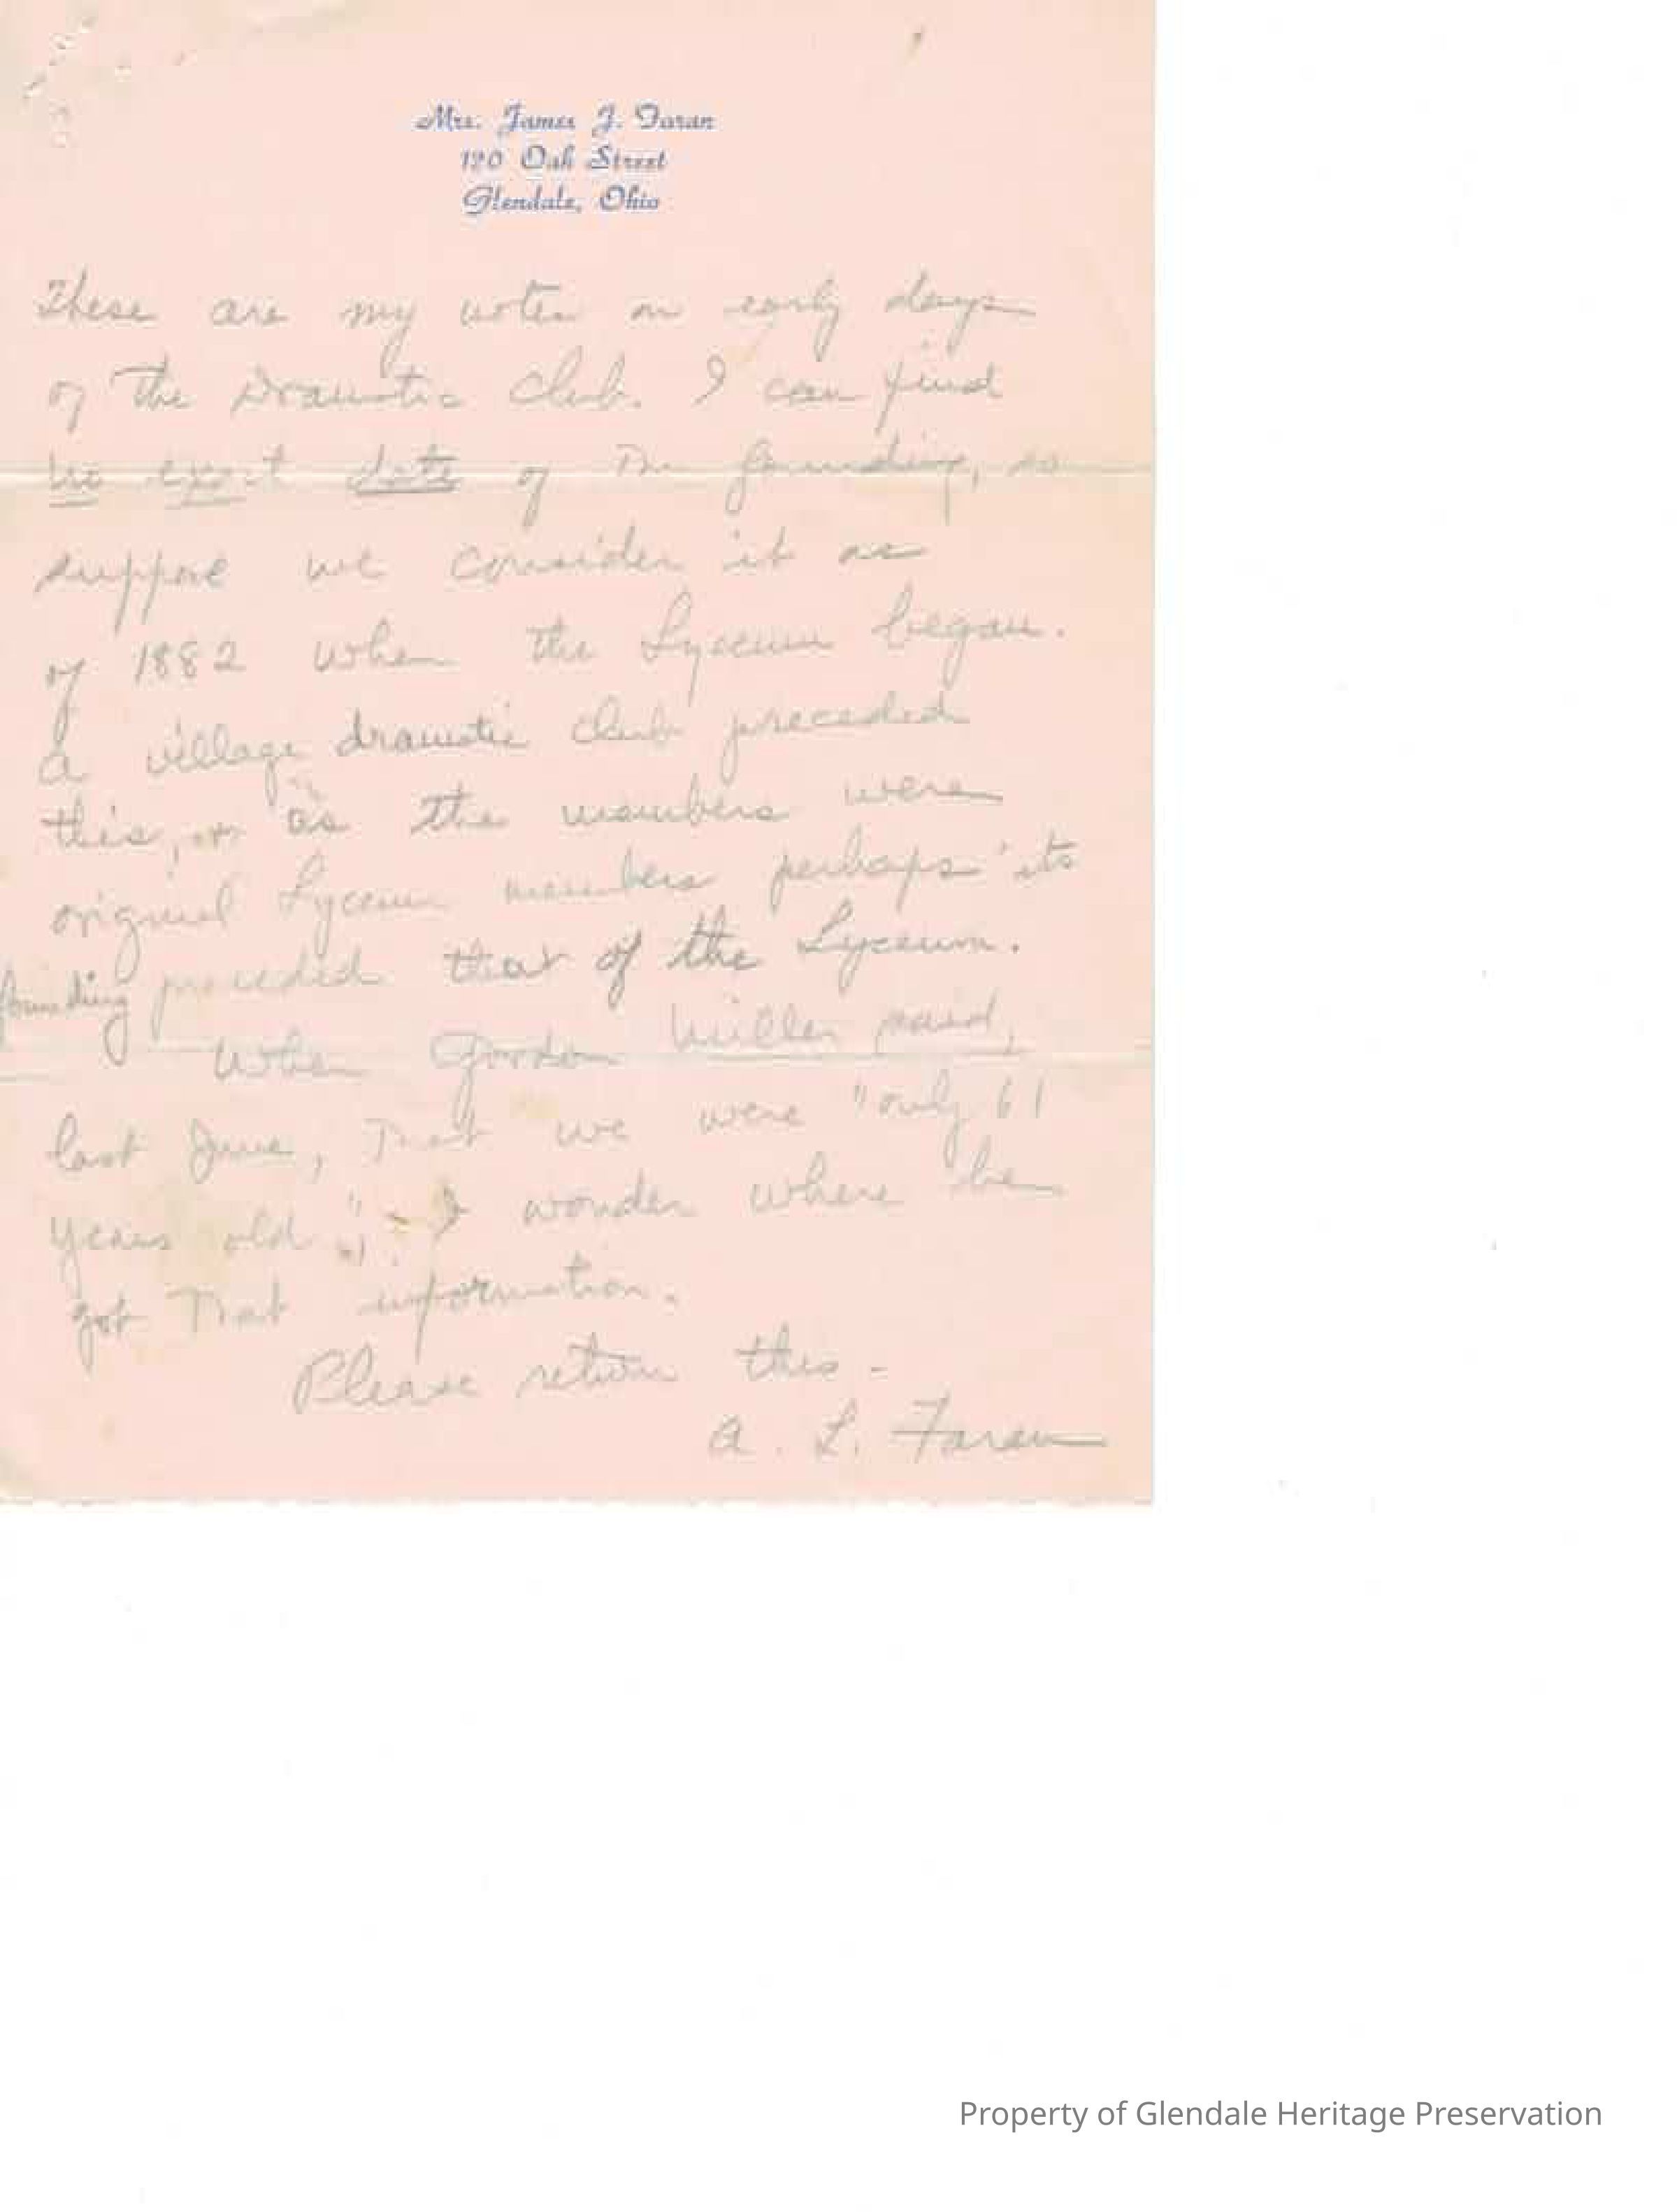 Mrs. James J. Faran
120 Oak Street
Glendale, Ohio
These are my notes on early days
of the Dramatic Club. I can find
no exact date of the founding, so
suppose we consider it as
of 1882 when the Lyceum began.
A village dramatic club preceded
this, or as the members were
original Lyceum members perhaps its
founding preceded that of the Lyceum.
When Gordon Miller said,
last June, that we were "only 61
years old", I wonder where he
got that information.
Please return this -
A. L. Faran
Property of Glendale Heritage Preservation